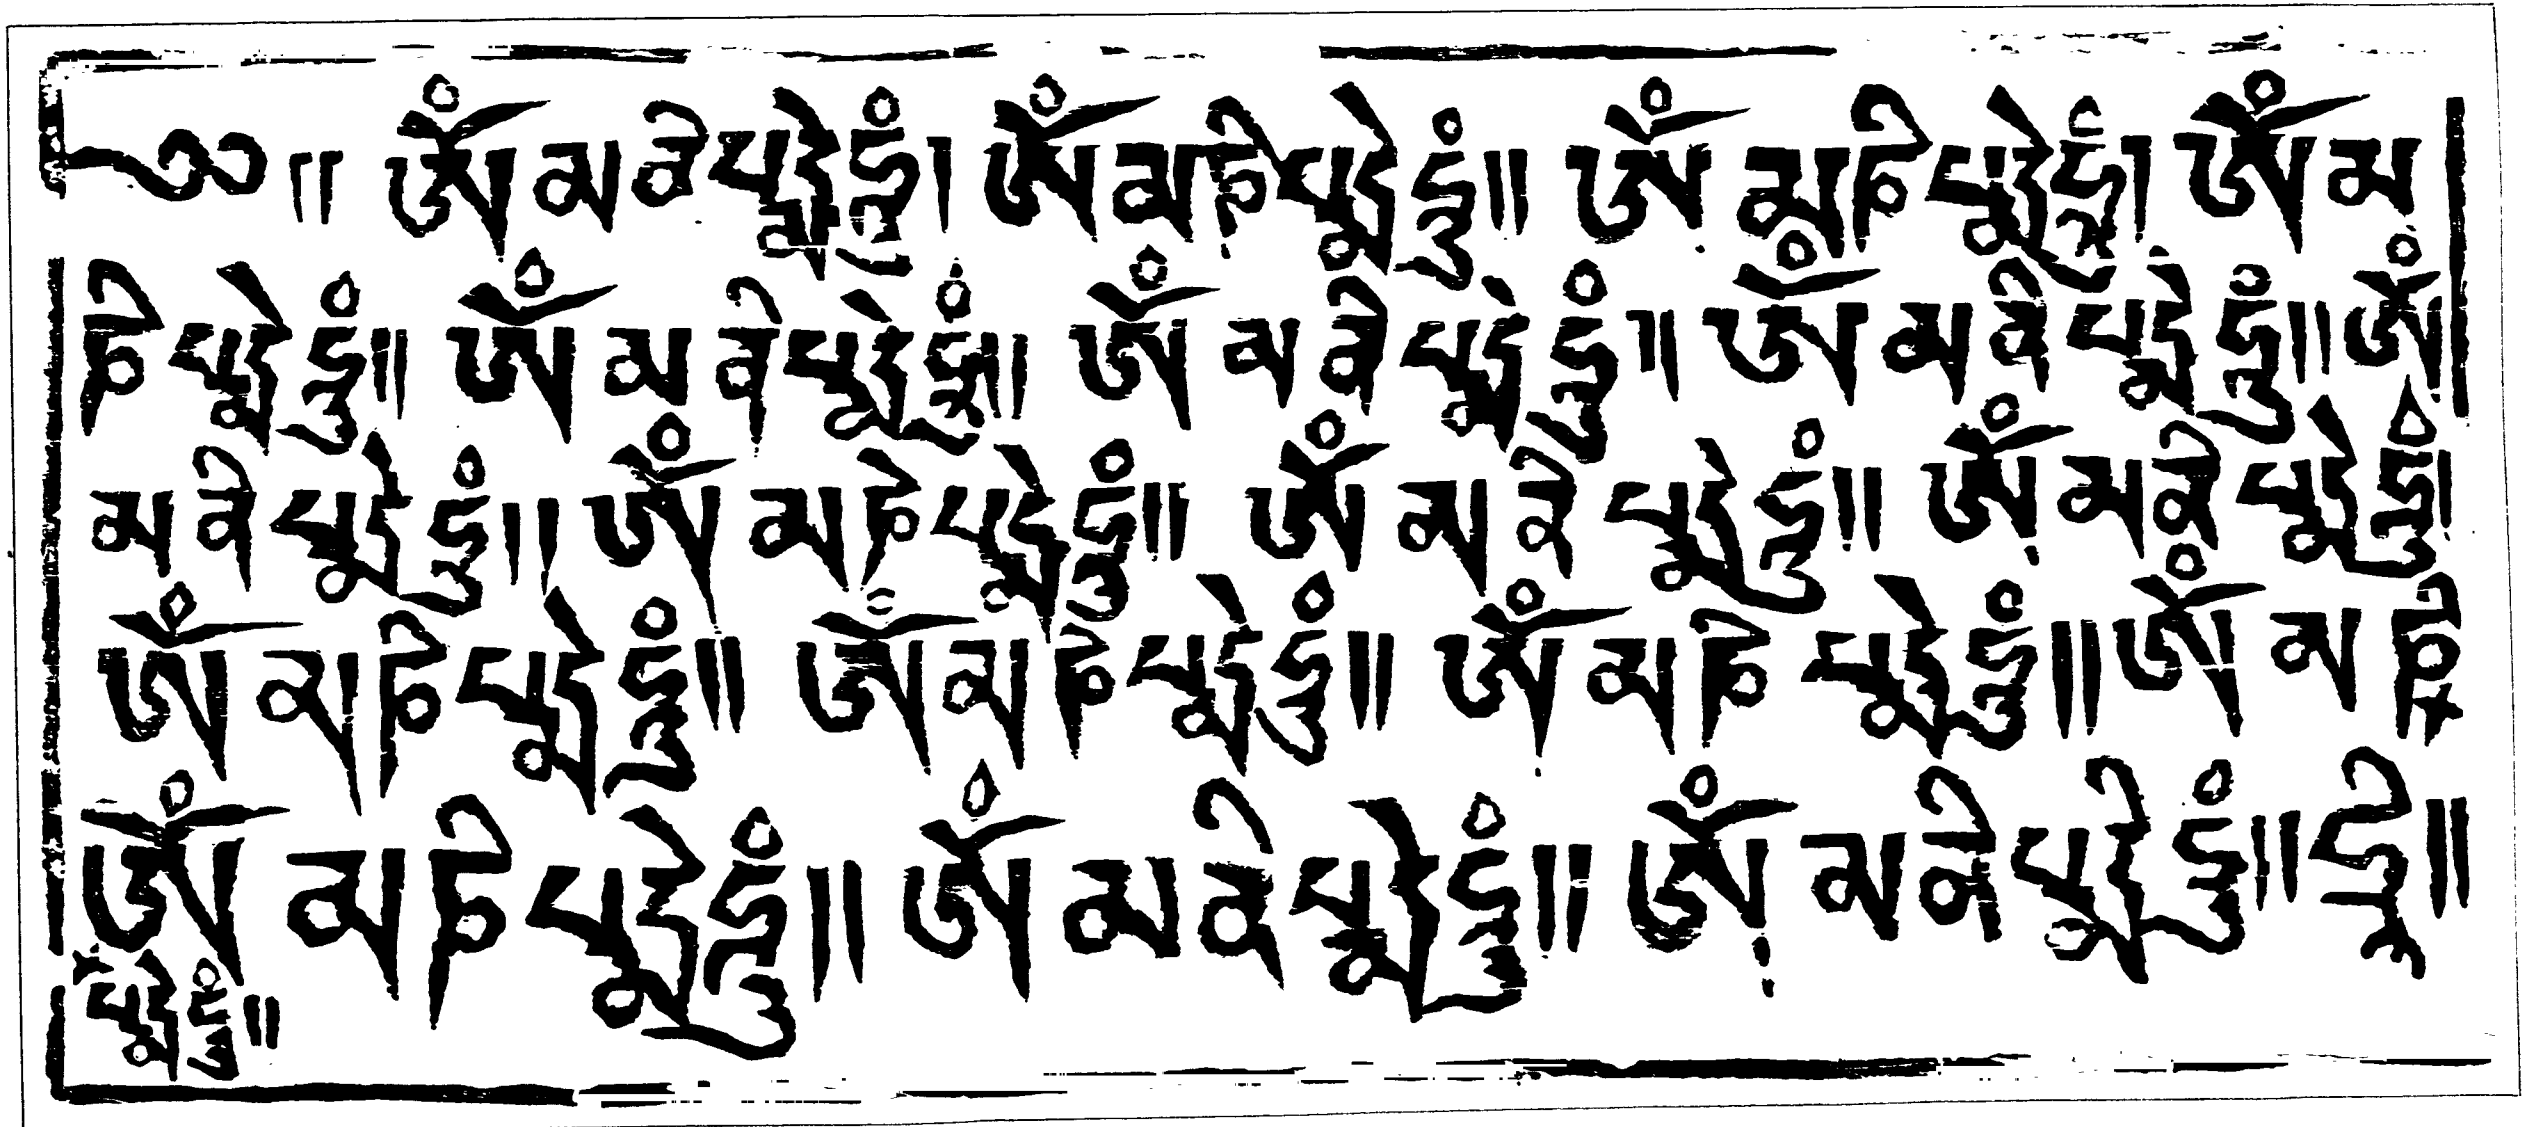 ༄།། ཨོཾ་མ་ནི་པདྨེ་ཧཱུཾ། ཨོཾ་མ་ཎི་པདྨེ་ཧཱུཾ།། ཨོཾ་མ་ཎི་པདྨེ་ཧཱུཾ། ཨོཾ་མ་
ཎི་པདྨེ་ཧཱུཾ།། ཨོཾ་མ་ནི་པདྨེ་ཧཱུཾ།། ཨོཾ་མ་ནི་པདྨེ་ཧཱུཾ།། ཨོཾ་མ་ནི་པདྨེ་ཧཱུཾ།། ཨོཾ་
མ་ནི་པདྨེ་ཧཱུཾ།། ཨོཾ་མ་ཎི་པདྨེ་ཧཱུཾ།། ཨོཾ་མ་ནི་པདྨེ་ཧཱུཾ།། ཨོཾ་མ་ནི་པདྨེ་ཧཱུཾ།
ཨོཾ་མ་ཎི་པདྨེ་ཧཱུཾ།། ཨོཾ་མ་ཎི་པདྨེ་ཧཱུཾ།། ཨོཾ་མ་ཎི་པདྨེ་ཧཱུཾ།། ཨོཾ་མ་ཎི་
ཨོཾ་མ་ཎི་པདྨེ་ཧཱུཾ།། ཨོཾ་མ་ནི་པདྨེ་ཧཱུཾ།། ཨོཾ་མ་ནི་པདྨེ་ཧཱུཾ།། ཧྲི།།
པདྨེ་ཧཱུཾ།།